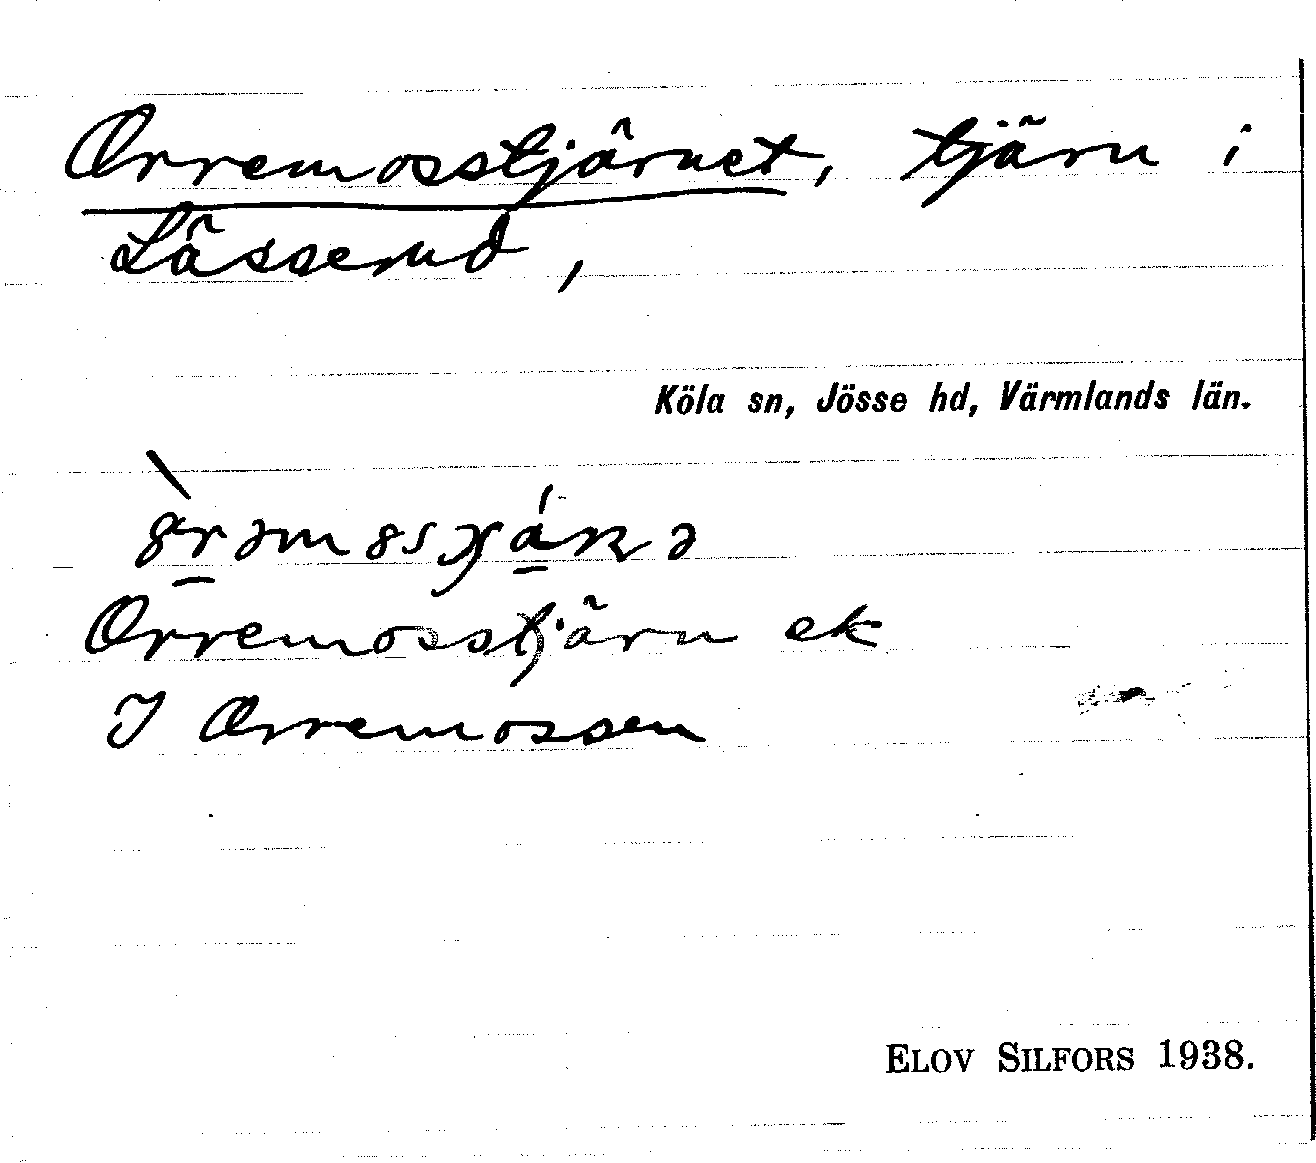 Orremosstjärnet, tjärn i
Lässerud,
Köla sn, Jösse hd, Värmlands län.
Orremosstjärn ek
I Orremossen
ELOV SILFORS 1938.